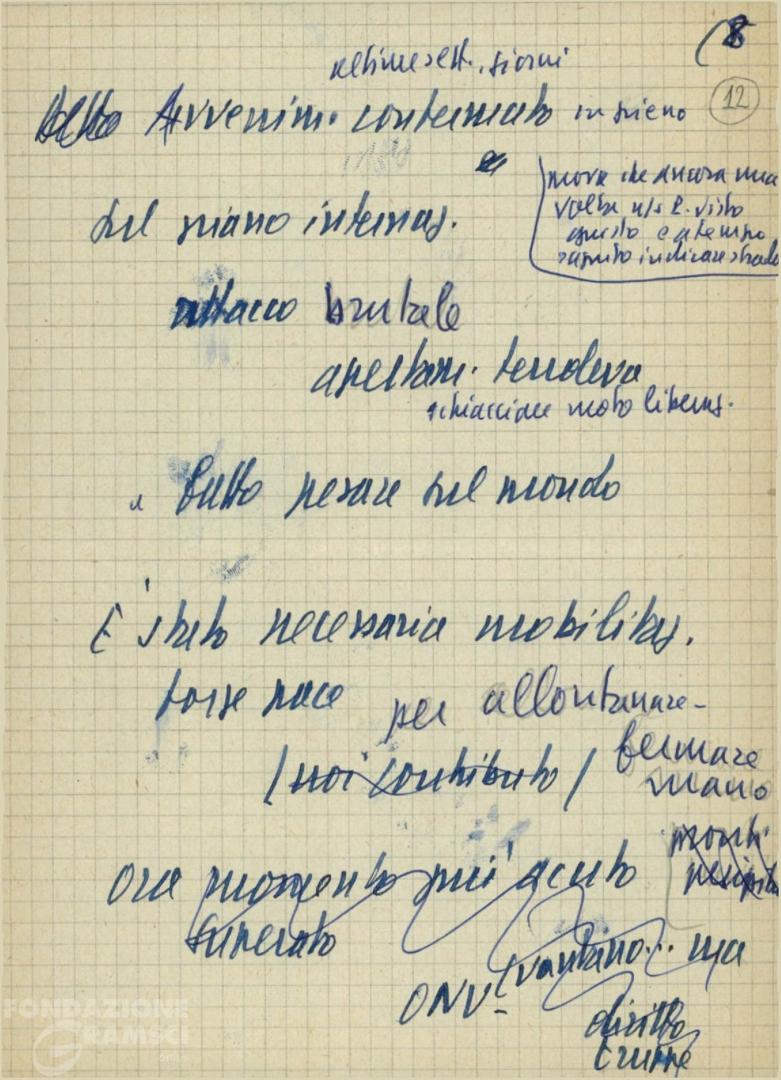 (8
12
ultime sett., giorni
Avvenim. confermato in pieno
prova che ancora una
volta ns. P. visto
giusto e a tempo,
saputo indicare strada
Sul piano internaz.
attacco brutale
apertam. tendeva
schiacciare moto liberaz.
e tutto pesare sul mondo
È stata necessaria mobilitaz.
forze pace per allontanare -
fermare
mano
/ noi contributo /
pronti
Ora momento più acuto
superato
ONU - vantano... ma
diritto
truppe
FONDAZIONE
GRAMSCI